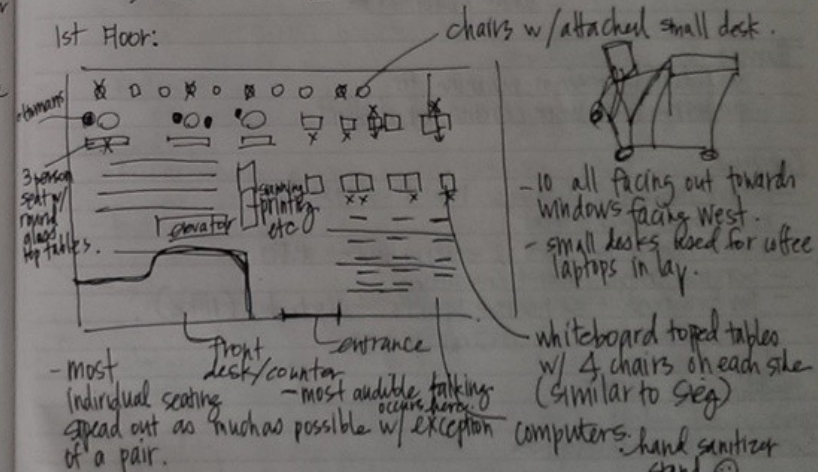 1st Floor:
chairs w/ attached small desk.
ottomans
3 person
seat w/
round
glass
top tables.
scanning
printing
etc
elevator
- 10 all facing out towards
windows facing west.
- small desks used for coffee
laptops in lay.
front
desk/counter
entrance
whiteboard toped tables
w/ 4 chairs on each side
(similar to sieg)
- most
individual seating
spead out as much as possible w/ exception
of a pair.
- most audible talking
occurs here
computers.
hand sanitizer
stand